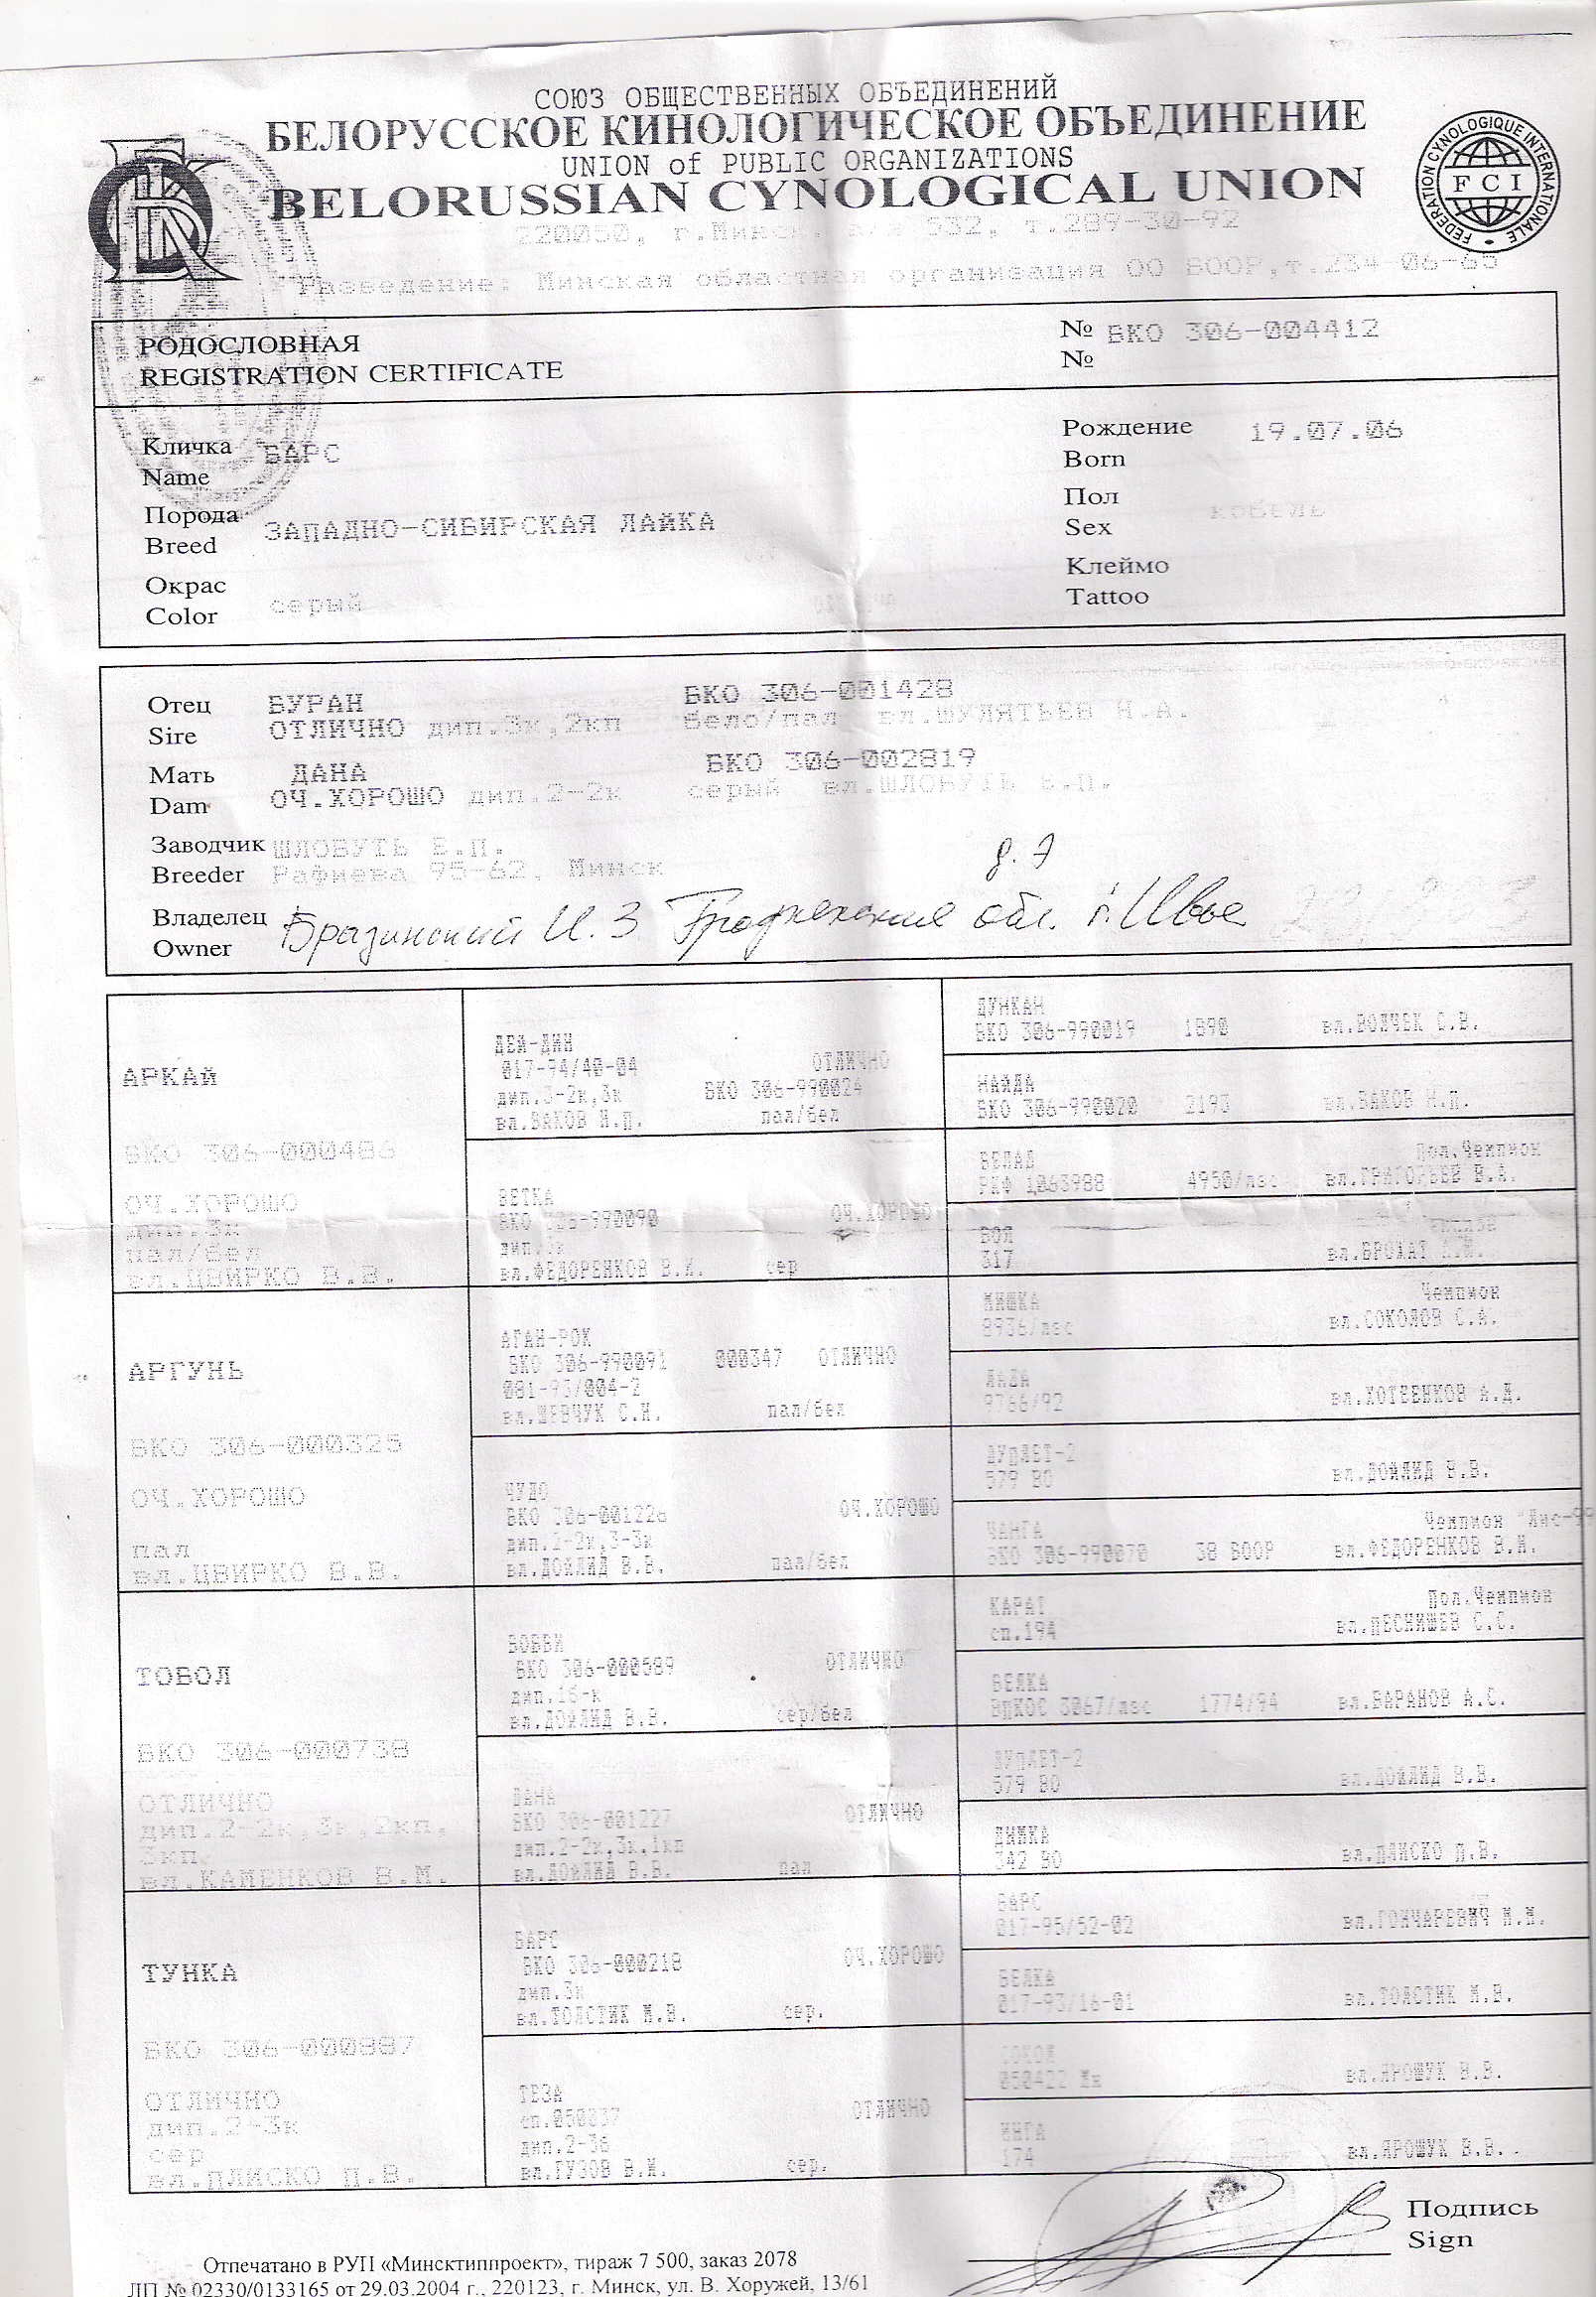 СОЮЗ ОБЩЕСТВЕННЫХ ОБЪЕДИНЕНИЙ
БЕЛОРУССКОЕ КИНОЛОГИЧЕСКОЕ ОБЪЕДИНЕНИЕ
UNION of PUBLIC ORGANIZATIONS
BELORUSSIAN CYNOLOGICAL UNION
FEDERATION CYNOLOGIQUE INTERNATIONALE
FCI
220050, 532, т.289-30-92
Разведение: Минская областная организация ОО БООР,т.234-06-65
РОДОСЛОВНАЯ
REGISTRATION CERTIFICATE
№ БКО 306-004412
№
Кличка БАРС
Name
Рождение 19.07.06
Born
Порода ЗАПАДНО-СИБИРСКАЯ ЛАЙКА
Breed
Пол кобель
Sex
Окрас серый
Color
Клеймо
Tattoo
Отец БУРАН БКО 306-001428
Sire ОТЛИЧНО дип.3к,2кп бело/пал вл.ШУЛЯТЬЕВ Н.А.
Мать ДАНА БКО 306-002819
Dam ОЧ.ХОРОШО дип.2-2к серый вл.ШЛОБУТЬ Б.П.
Заводчик ШЛОБУТЬ Б.П.
Breeder Рафиева 95-62, Минск
Владелец Бразинский И.З Гродненская обл. г.Ивье
Owner
АРКАЙ
БКО 306-000486
ОЧ.ХОРОШО
дип.3к
пал/бел
вл.ЦВИРКО В.В.
ДЕЙ-ДИН
017-94/40-04 ОТЛИЧНО
дип.3-2к,3к БКО 306-990024
вл.БАКОВ Н.П. пал/бел
ДУНКАН
БКО 306-990019 1890 вл.ВОЛЧЕК С.В.
НАЙДА
БКО 306-990020 2193 вл.БАКОВ Н.П.
ВЕТКА
БКО 306-990090 ОЧ.ХОРОШО
дип.3к
вл.ФЕДОРЕНКОВ В.И. сер
БЕЛАД Пол.Чемпион
РКФ 1063988 4950/лзс вл.ГРИГОРЬЕВ В.А.
317
МИШКА Чемпион
8936/лзс вл.СОКОЛОВ С.А.
АРГУНЬ
БКО 306-000325
ОЧ.ХОРОШО
пал
вл.ЦВИРКО В.В.
АГАН-РОК
БКО 306-990091 000347 ОТЛИЧНО
081-93/004-2
вл.ШЕВЧУК С.Н. пал/бел
9766/92 вл.ХОТЕЕНКОВ А.Д.
ЧУДО
БКО 306-001226 ОЧ.ХОРОШО
дип.2-2к,3-3к
вл.ДОЙЛИД В.В. пал/бел
ДУПЛЕТ-2
579 ВО вл.ДОЙЛИД В.В.
ЧАНГА Чемпион
БКО 306-990070 38 БООР вл.ФЕДОРЕНКОВ В.И.
ТОБОЛ
БКО 306-000738
ОТЛИЧНО
дип.2-2к,3к,2кп,
3кп
вл.КАМЕНКОВ В.М.
БОББИ
БКО 306-000589 ОТЛИЧНО
вл.ДОЙЛИД В.В. сер/бел
КАРАТ Пол.Чемпион
сп.194 вл.ПЕСНИШЕВ С.С.
БЕЛКА
ВПКОС 3067/лзс 1774/94 вл.БАРАНОВ А.С.
ДАНА
БКО 306-001227 ОТЛИЧНО
дип.2-2к,3к,1кп
вл.ДОЙЛИД В.В. пал
ДУПЛЕТ-2
579 ВО вл.ДОЙЛИД В.В.
ДЫМКА
342 ВО вл.ПЛИСКО П.В.
ТУНКА
БКО 306-000887
ОТЛИЧНО
дип.2-3к
сер
вл.ПЛИСКО П.В.
БАРС
БКО 306-000218 ОЧ.ХОРОШО
дип.3к
вл.ТОЛСТИК М.В. сер.
БАРС
017-95/52-02 вл.ГОНЧАРЕВИЧ М.М.
БЕЛКА
017-93/16-01 вл.ТОЛСТИК М.В.
ТЕЗА
сп.050037 ОТЛИЧНО
дип.2-3б
вл.ГУЗОВ В.И. сер.
СОКОЛ
050422 Мн вл.ЯРОШУК В.В.
ИНГА
174 вл.ЯРОШУК В.В.
Подпись
Sign
Отпечатано в РУП «Минсктиппроект», тираж 7 500, заказ 2078
ЛП № 02330/0133165 от 29.03.2004 г., 220123, г. Минск, ул. В. Хоружей, 13/61